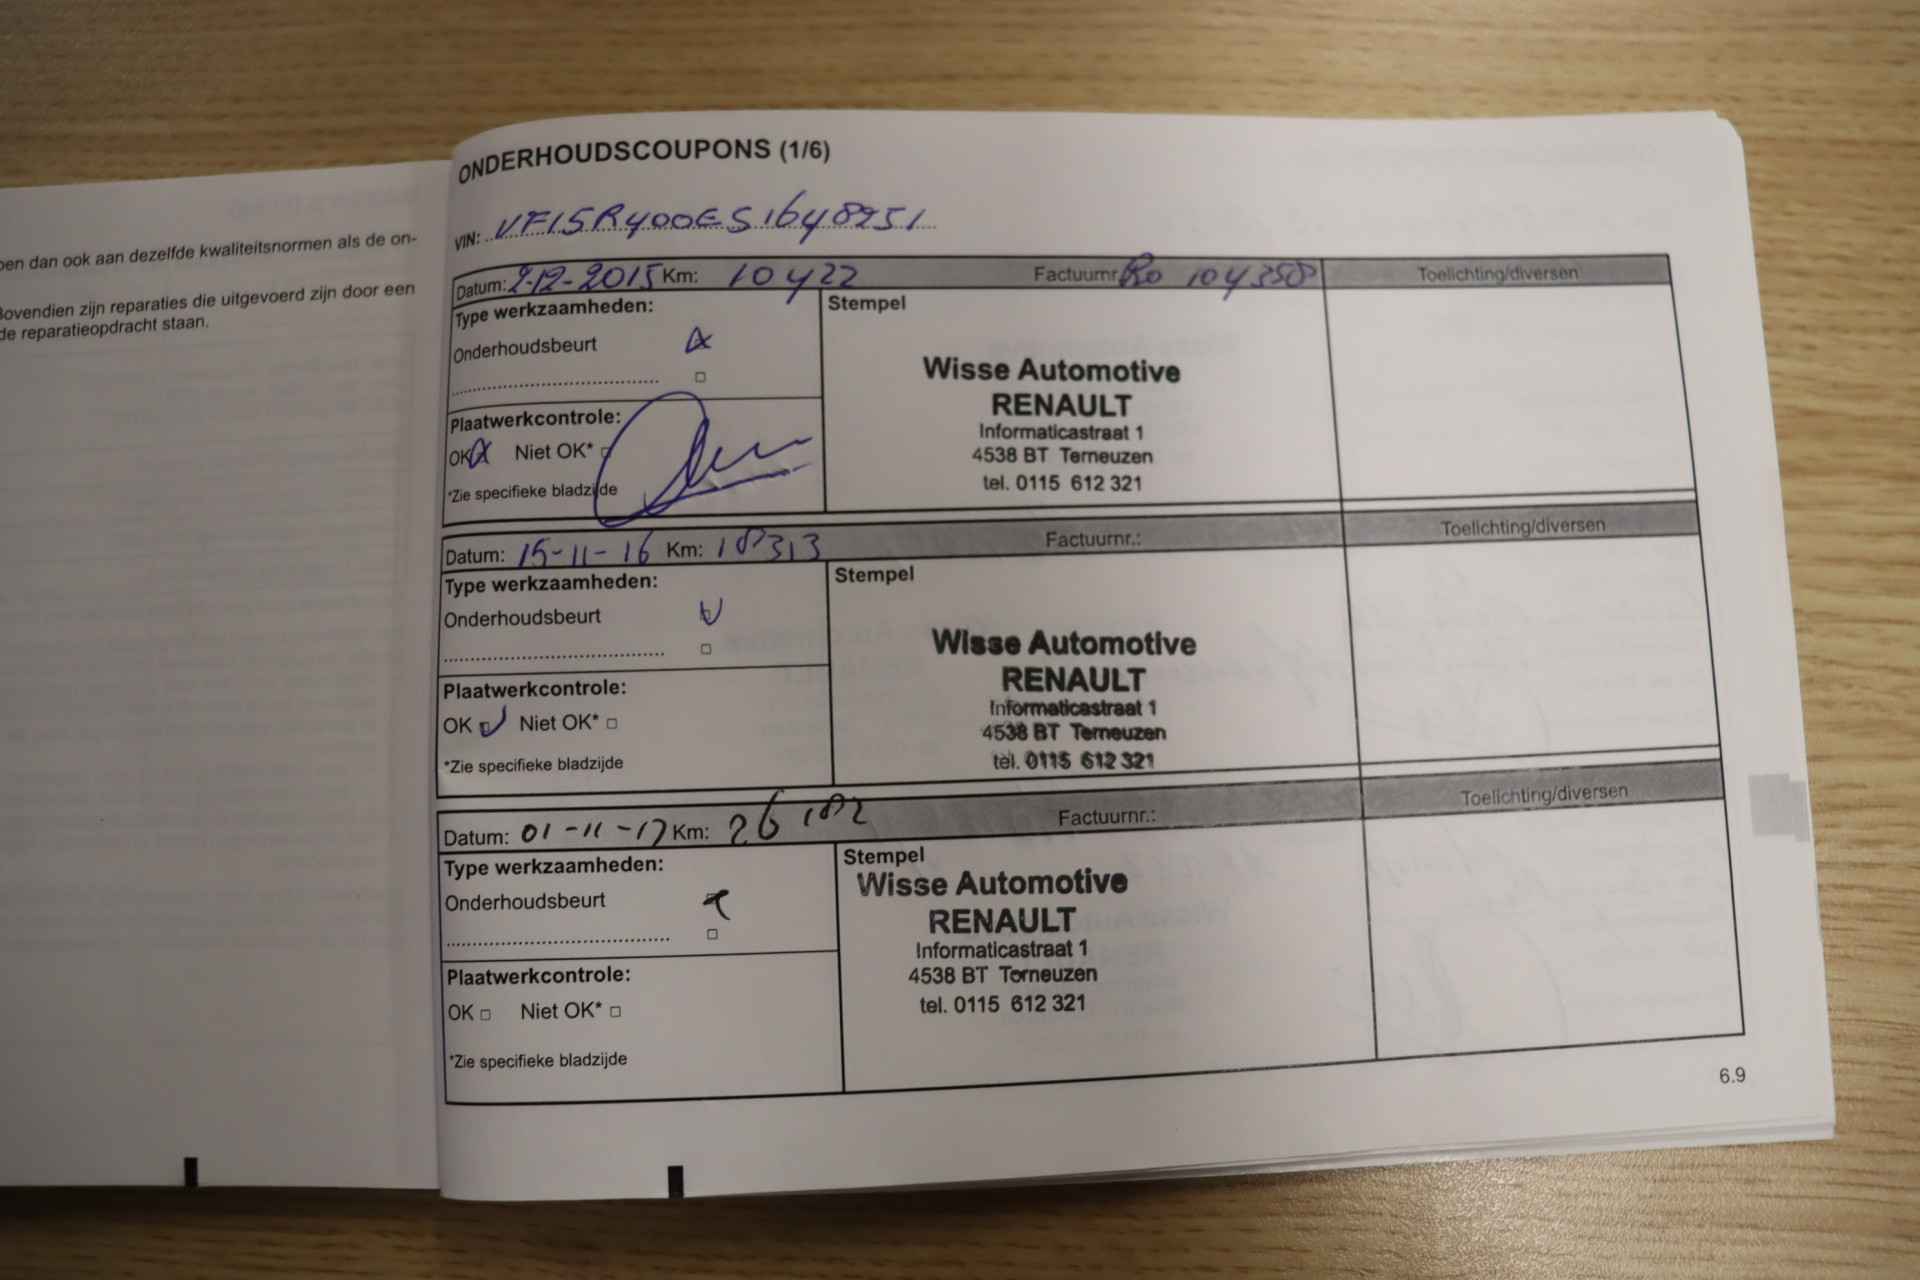 pen dan ook aan dezelfde kwaliteitsnormen als de on-
Bovendien zijn reparaties die uitgevoerd zijn door een
de reparatieopdracht staan.
ONDERHOUDSCOUPONS (1/6)
VIN: VF15R400ES1648951
Datum: 2-12-2015 Km: 10422 Factuurnr. Ro 104358 Toelichting/diversen
Type werkzaamheden:
Stempel
Onderhoudsbeurt
Wisse Automotive
RENAULT
Informaticastraat 1
4538 BT Terneuzen
tel. 0115 612 321
Plaatwerkcontrole:
OK Niet OK*
*Zie specifieke bladzijde
Datum: 15-11-16 Km: 18313 Factuurnr.: Toelichting/diversen
Type werkzaamheden:
Stempel
Onderhoudsbeurt
Wisse Automotive
RENAULT
Informaticastraat 1
4538 BT Terneuzen
tel. 0115 612 321
Plaatwerkcontrole:
OK Niet OK*
*Zie specifieke bladzijde
Datum: 01-11-17 Km: 26182 Factuurnr.: Toelichting/diversen
Type werkzaamheden:
Stempel
Onderhoudsbeurt
Wisse Automotive
RENAULT
Informaticastraat 1
4538 BT Terneuzen
tel. 0115 612 321
Plaatwerkcontrole:
OK Niet OK*
*Zie specifieke bladzijde
6.9